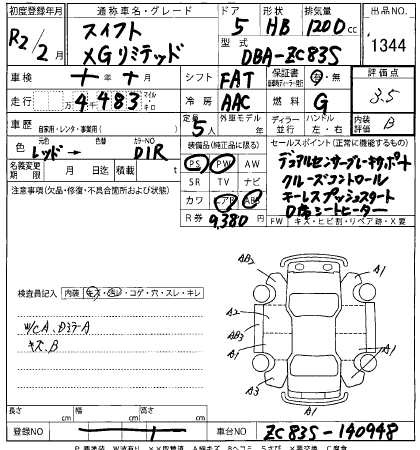 初度登録年月 通称車名・グレード ドア 形状 排気量 出品NO.
R2/2月 スイフト XGリミテッド 5 HB 1200 cc 1344
型式 DBA-ZC83S
車検 年 月 シフト FAT 保証書 有・無 評価点 3.5
走行 万 4,483 マイル・キロ 冷房 AAC 燃料 G
車歴 自家用・レンタ・事業用( ) 定員 5人 外車モデル 年 ディーラー 並行 ハンドル 左・右 内装評価 B
色 元色 レッド → 色替 カラーNO D1R
装備品(純正品に限る) セールスポイント(正常に機能するもの)
名義変更期限 月 日迄 積載 t
PS PW AW
SR TV ナビ
カワ エアB ABS
R券 9,380円
デュアルセンサーブレーキサポート
クルーズコントロール
キーレスプッシュスタート
D席シートヒーター
注意事項(欠品・修復・不具合箇所および状態)
FW キズ・ヒビ割・リペア跡・X要
検査員記入 内装 キズ・汚レ・コゲ・穴・スレ・キレ
W/CA、DミラーA
キズ、B
AB2 A1
A2
AB3
A1 A1
A3 A1
A1
長さ cm 幅 cm 高さ cm
登録NO 車台NO ZC83S-140948